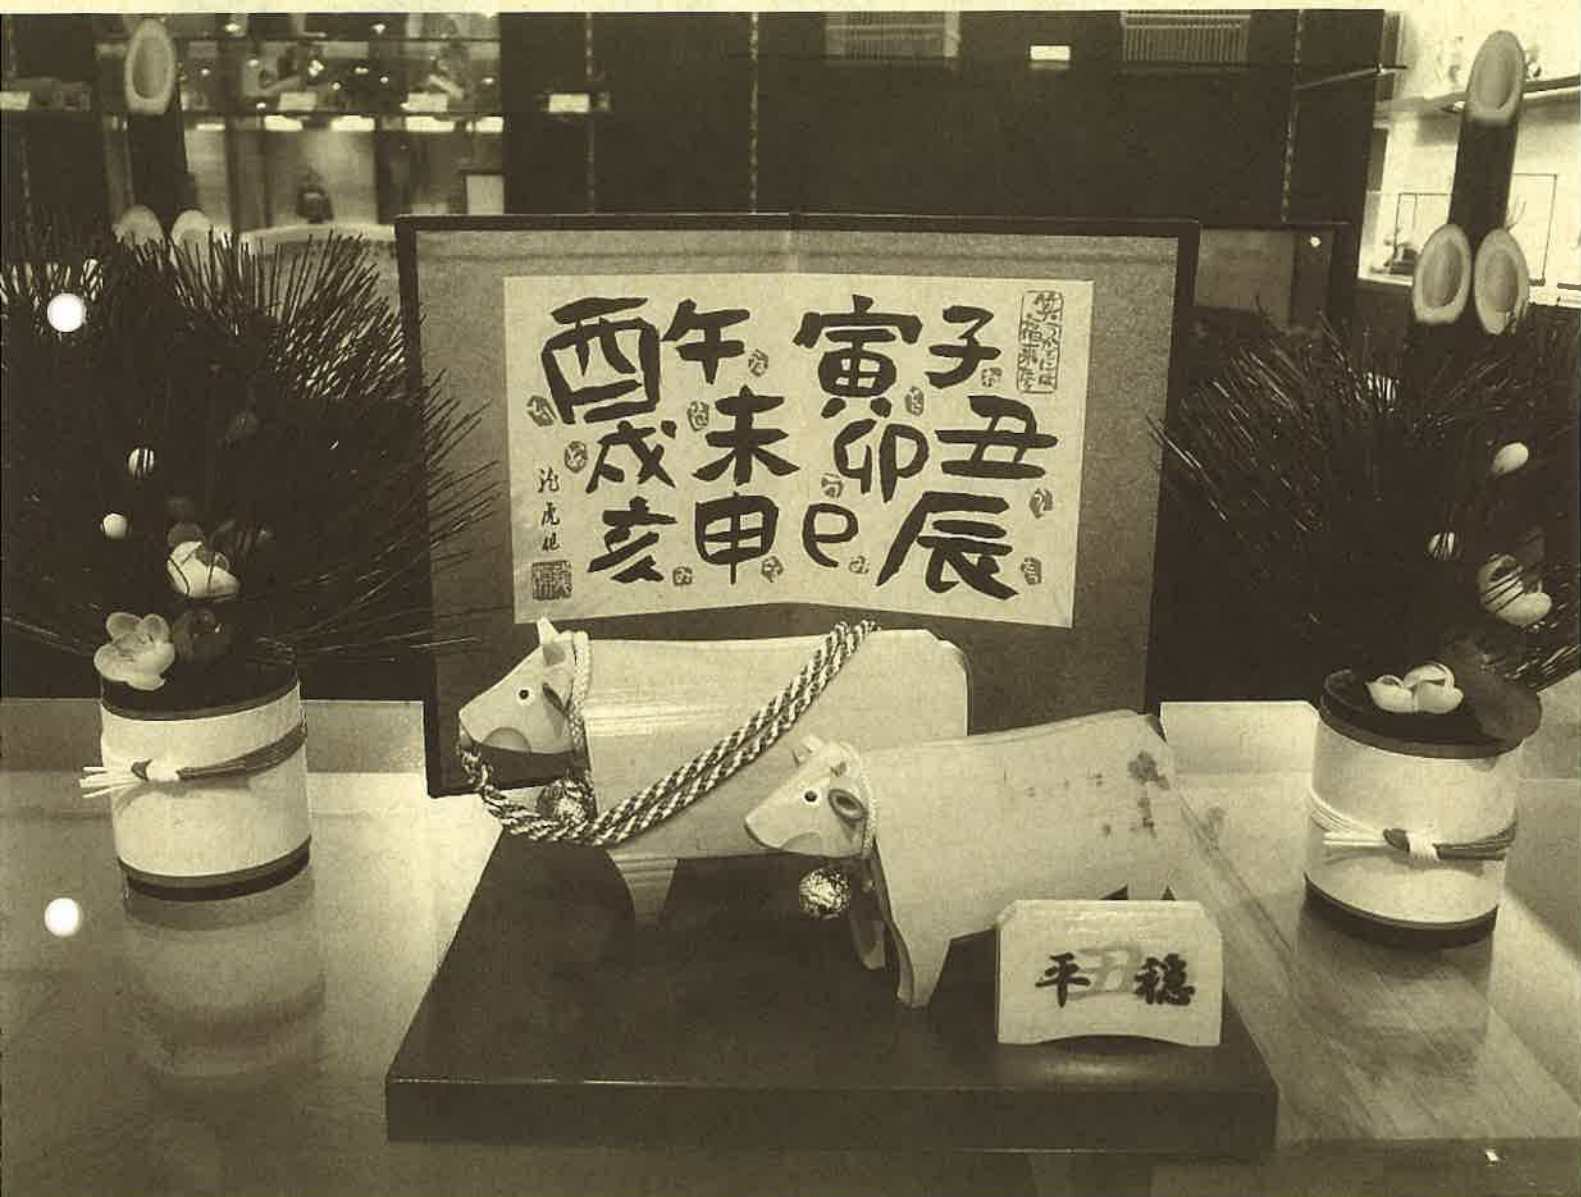 子丑辰
寅卯巳
午未申
酉戌亥
平丑穏